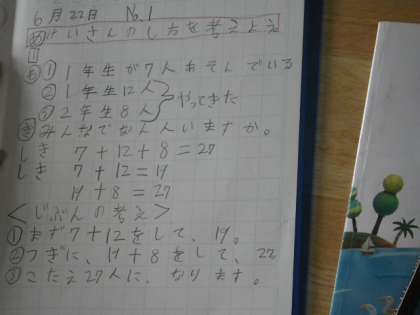 6月22日 No.1
めけいさんのしかたを考えよう
お①1年生が7人あそんでいる
②1年生12人
③2年生8人
やってきた
きみんなでなん人いますか。
しき 7+12+8=27
しき 7+12=19
19+8=27
<じぶんの考え>
①まず7+12をして、19。
②つぎに、19+8をして、27
③こたえ27人に、なります。